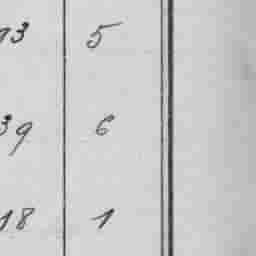 13 5
39 6
18 1